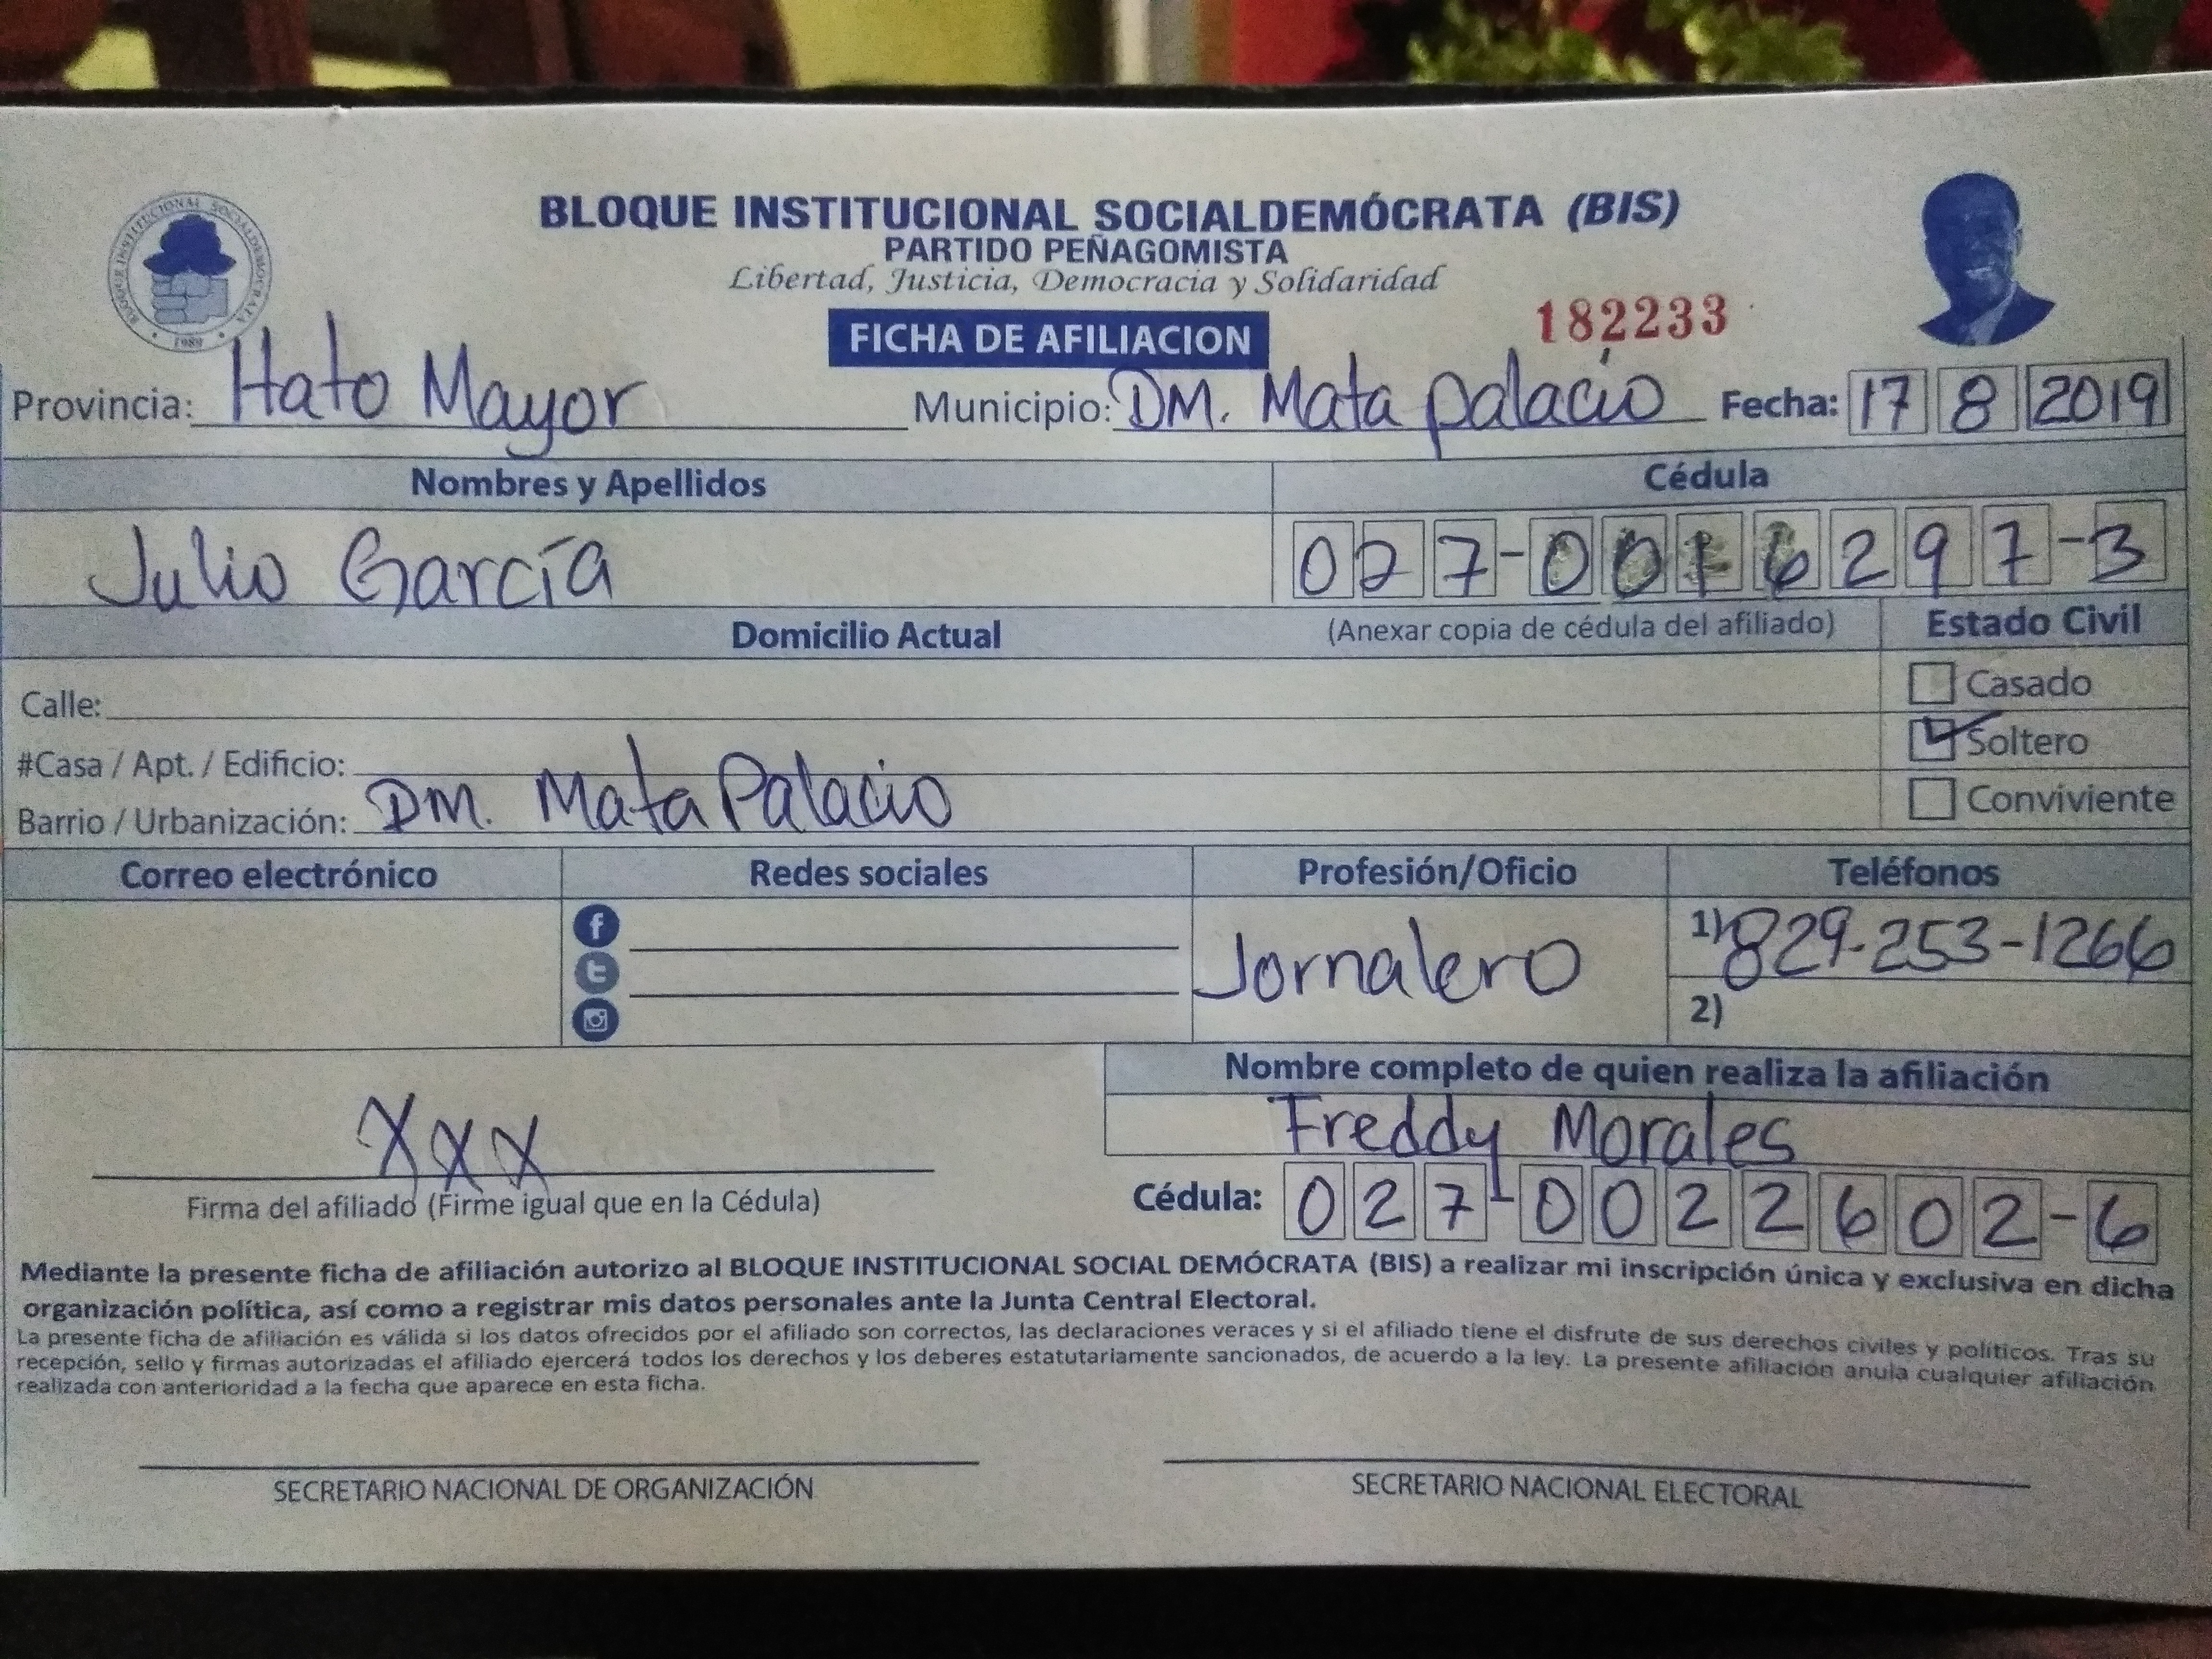 BLOQUE INSTITUCIONAL SOCIALDEMÓCRATA (BIS)
PARTIDO PEÑAGOMISTA
Libertad, Justicia, Democracia y Solidaridad
BLOQUE INSTITUCIONAL SOCIALDEMOCRATA
1989
FICHA DE AFILIACION
182233
Provincia: Hato Mayor Municipio: DM. Mata palacio Fecha: 17 8 2019
Nombres y Apellidos Cédula
Julio García 027-0016297-3
Domicilio Actual (Anexar copia de cédula del afiliado) Estado Civil
Calle: Casado
#Casa / Apt. / Edificio: Soltero
Barrio / Urbanización: DM. Mata Palacio Conviviente
Correo electrónico Redes sociales Profesión/Oficio Teléfonos
Jornalero 1) 829-253-1266
2)
Nombre completo de quien realiza la afiliación
XXX Freddy Morales
Firma del afiliado (Firme igual que en la Cédula) Cédula: 027-0022602-6
Mediante la presente ficha de afiliación autorizo al BLOQUE INSTITUCIONAL SOCIAL DEMÓCRATA (BIS) a realizar mi inscripción única y exclusiva en dicha
organización política, así como a registrar mis datos personales ante la Junta Central Electoral.
La presente ficha de afiliación es válida si los datos ofrecidos por el afiliado son correctos, las declaraciones veraces y si el afiliado tiene el disfrute de sus derechos civiles y políticos. Tras su
recepción, sello y firmas autorizadas el afiliado ejercerá todos los derechos y los deberes estatutariamente sancionados, de acuerdo a la ley. La presente afiliación anula cualquier afiliación
realizada con anterioridad a la fecha que aparece en esta ficha.
SECRETARIO NACIONAL DE ORGANIZACIÓN SECRETARIO NACIONAL ELECTORAL